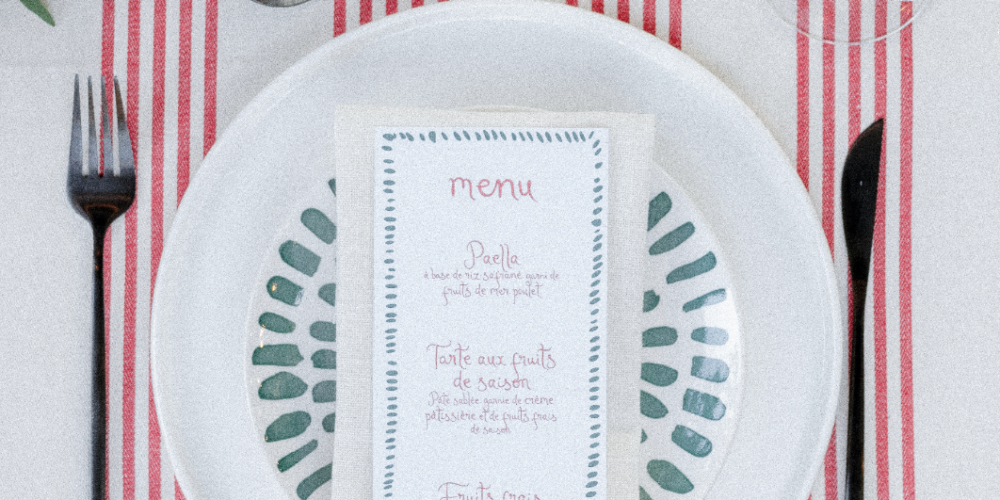 menu
Paella
à base de riz safrané garni de
fruits de mer poulet
Tarte aux fruits
de saison
Pâte sablée garnie de crème
pâtissière et de fruits frais
de saison
Fruits frais